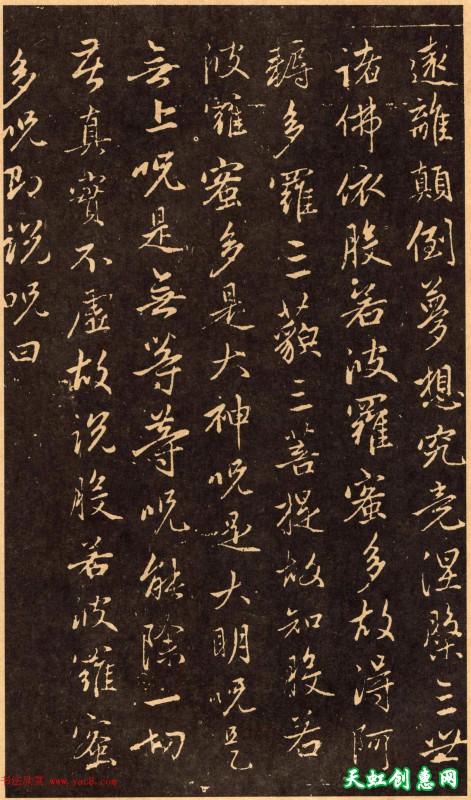 遠離顛倒夢想究竟涅槃三世
諸佛依般若波羅蜜多故得阿
耨多羅三藐三菩提故知般若
波羅蜜多是大神呪是大明呪是
無上呪是無等等呪能除一切
苦真實不虛故說般若波羅蜜
多呪即說呪曰
书法欣赏 www.yac8.com
天虹创惠网